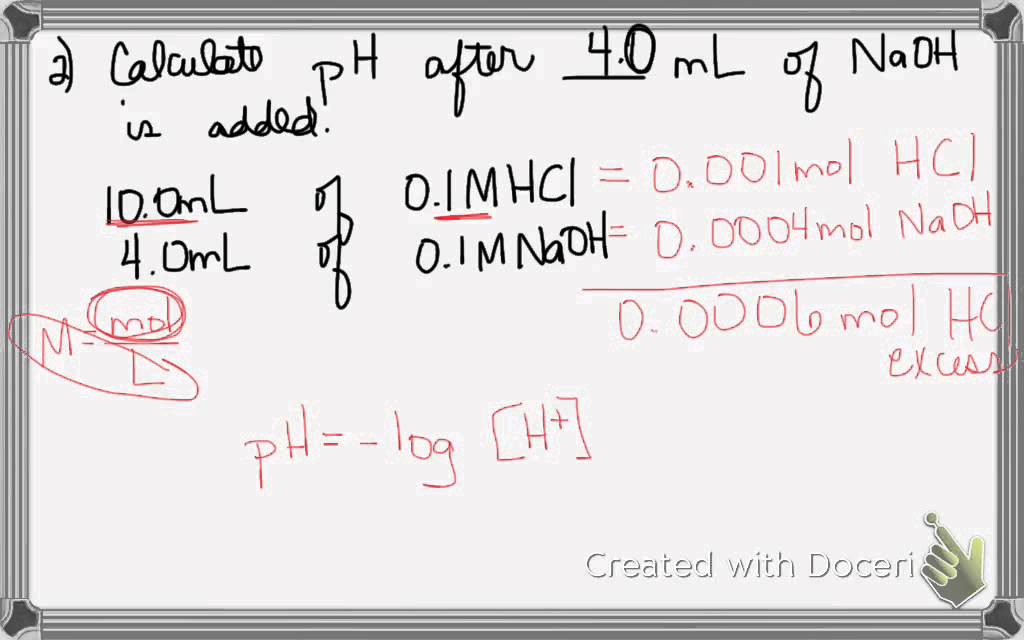 2) Calculate pH after 4.0 mL of NaOH
is added.
10.0mL of 0.1M HCl = 0.001mol HCl
4.0mL of 0.1M NaOH = 0.0004mol NaOH
0.0006 mol HCl
excess
M = mol
L
pH = -log [H+]
Created with Doceri